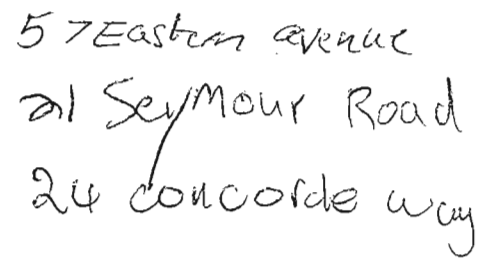 57 Eastern avenue
21 Seymour Road
24 concorde way